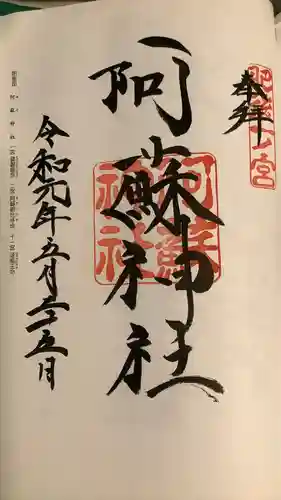 奉拝
肥後一ノ宮
阿蘇神社
阿蘇
神社
令和元年五月二十五日